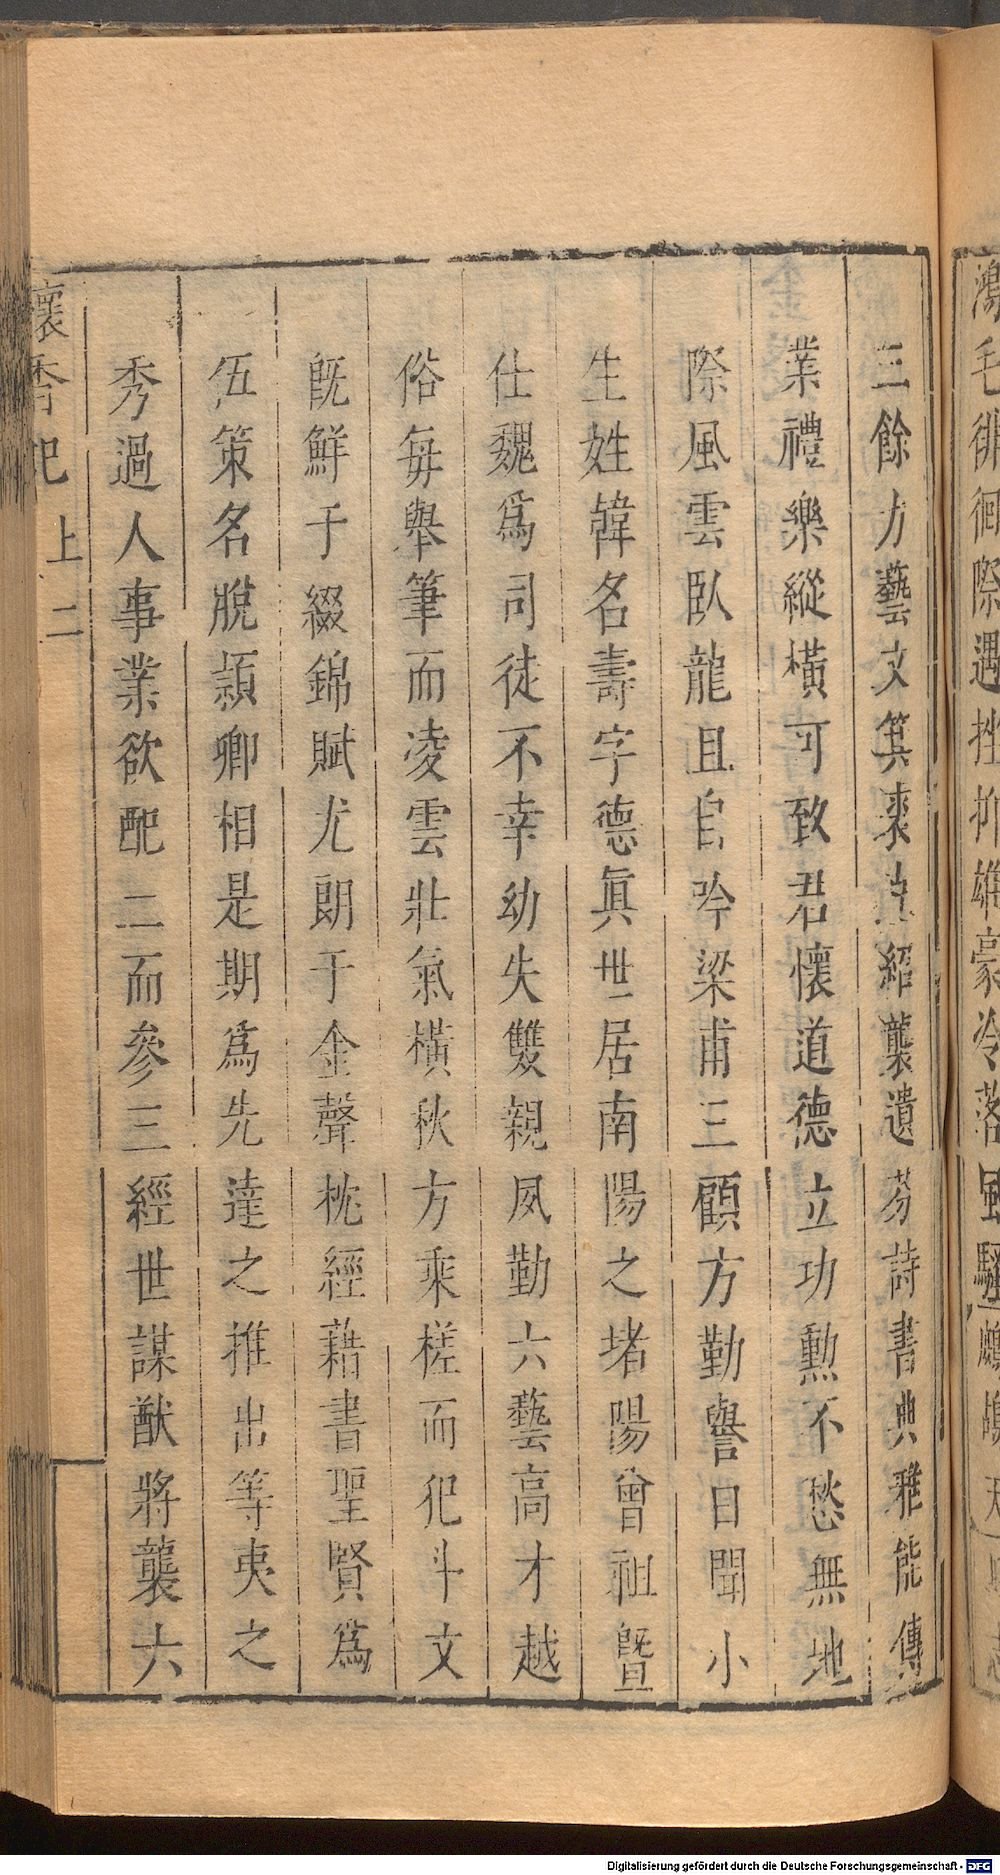 鴻毛徘徊際遇挫抑雄豪冷落風騷鷓鴣天
三餘力藝文箕裘克紹襲遺芬詩書典雅能傳
業禮樂縱橫可致君懷道德立功勲不愁無地
際風雲臥龍且自吟梁甫三顧方勤譽日聞小
生姓韓名壽字德眞世居南陽之堵陽曾祖曁
仕魏爲司徒不幸幼失雙親夙勤六藝高才越
俗每舉筆而凌雲壯氣橫秋方乘槎而犯斗文
旣鮮于綴錦賦尤朗于金聲枕經藉書聖賢爲
伍策名脫穎卿相是期爲先達之推出等夷之
秀過人事業欲配二而參三經世謀猷將襲六
懷香記 上 二
Digitalisierung gefördert durch die Deutsche Forschungsgemeinschaft - DFG